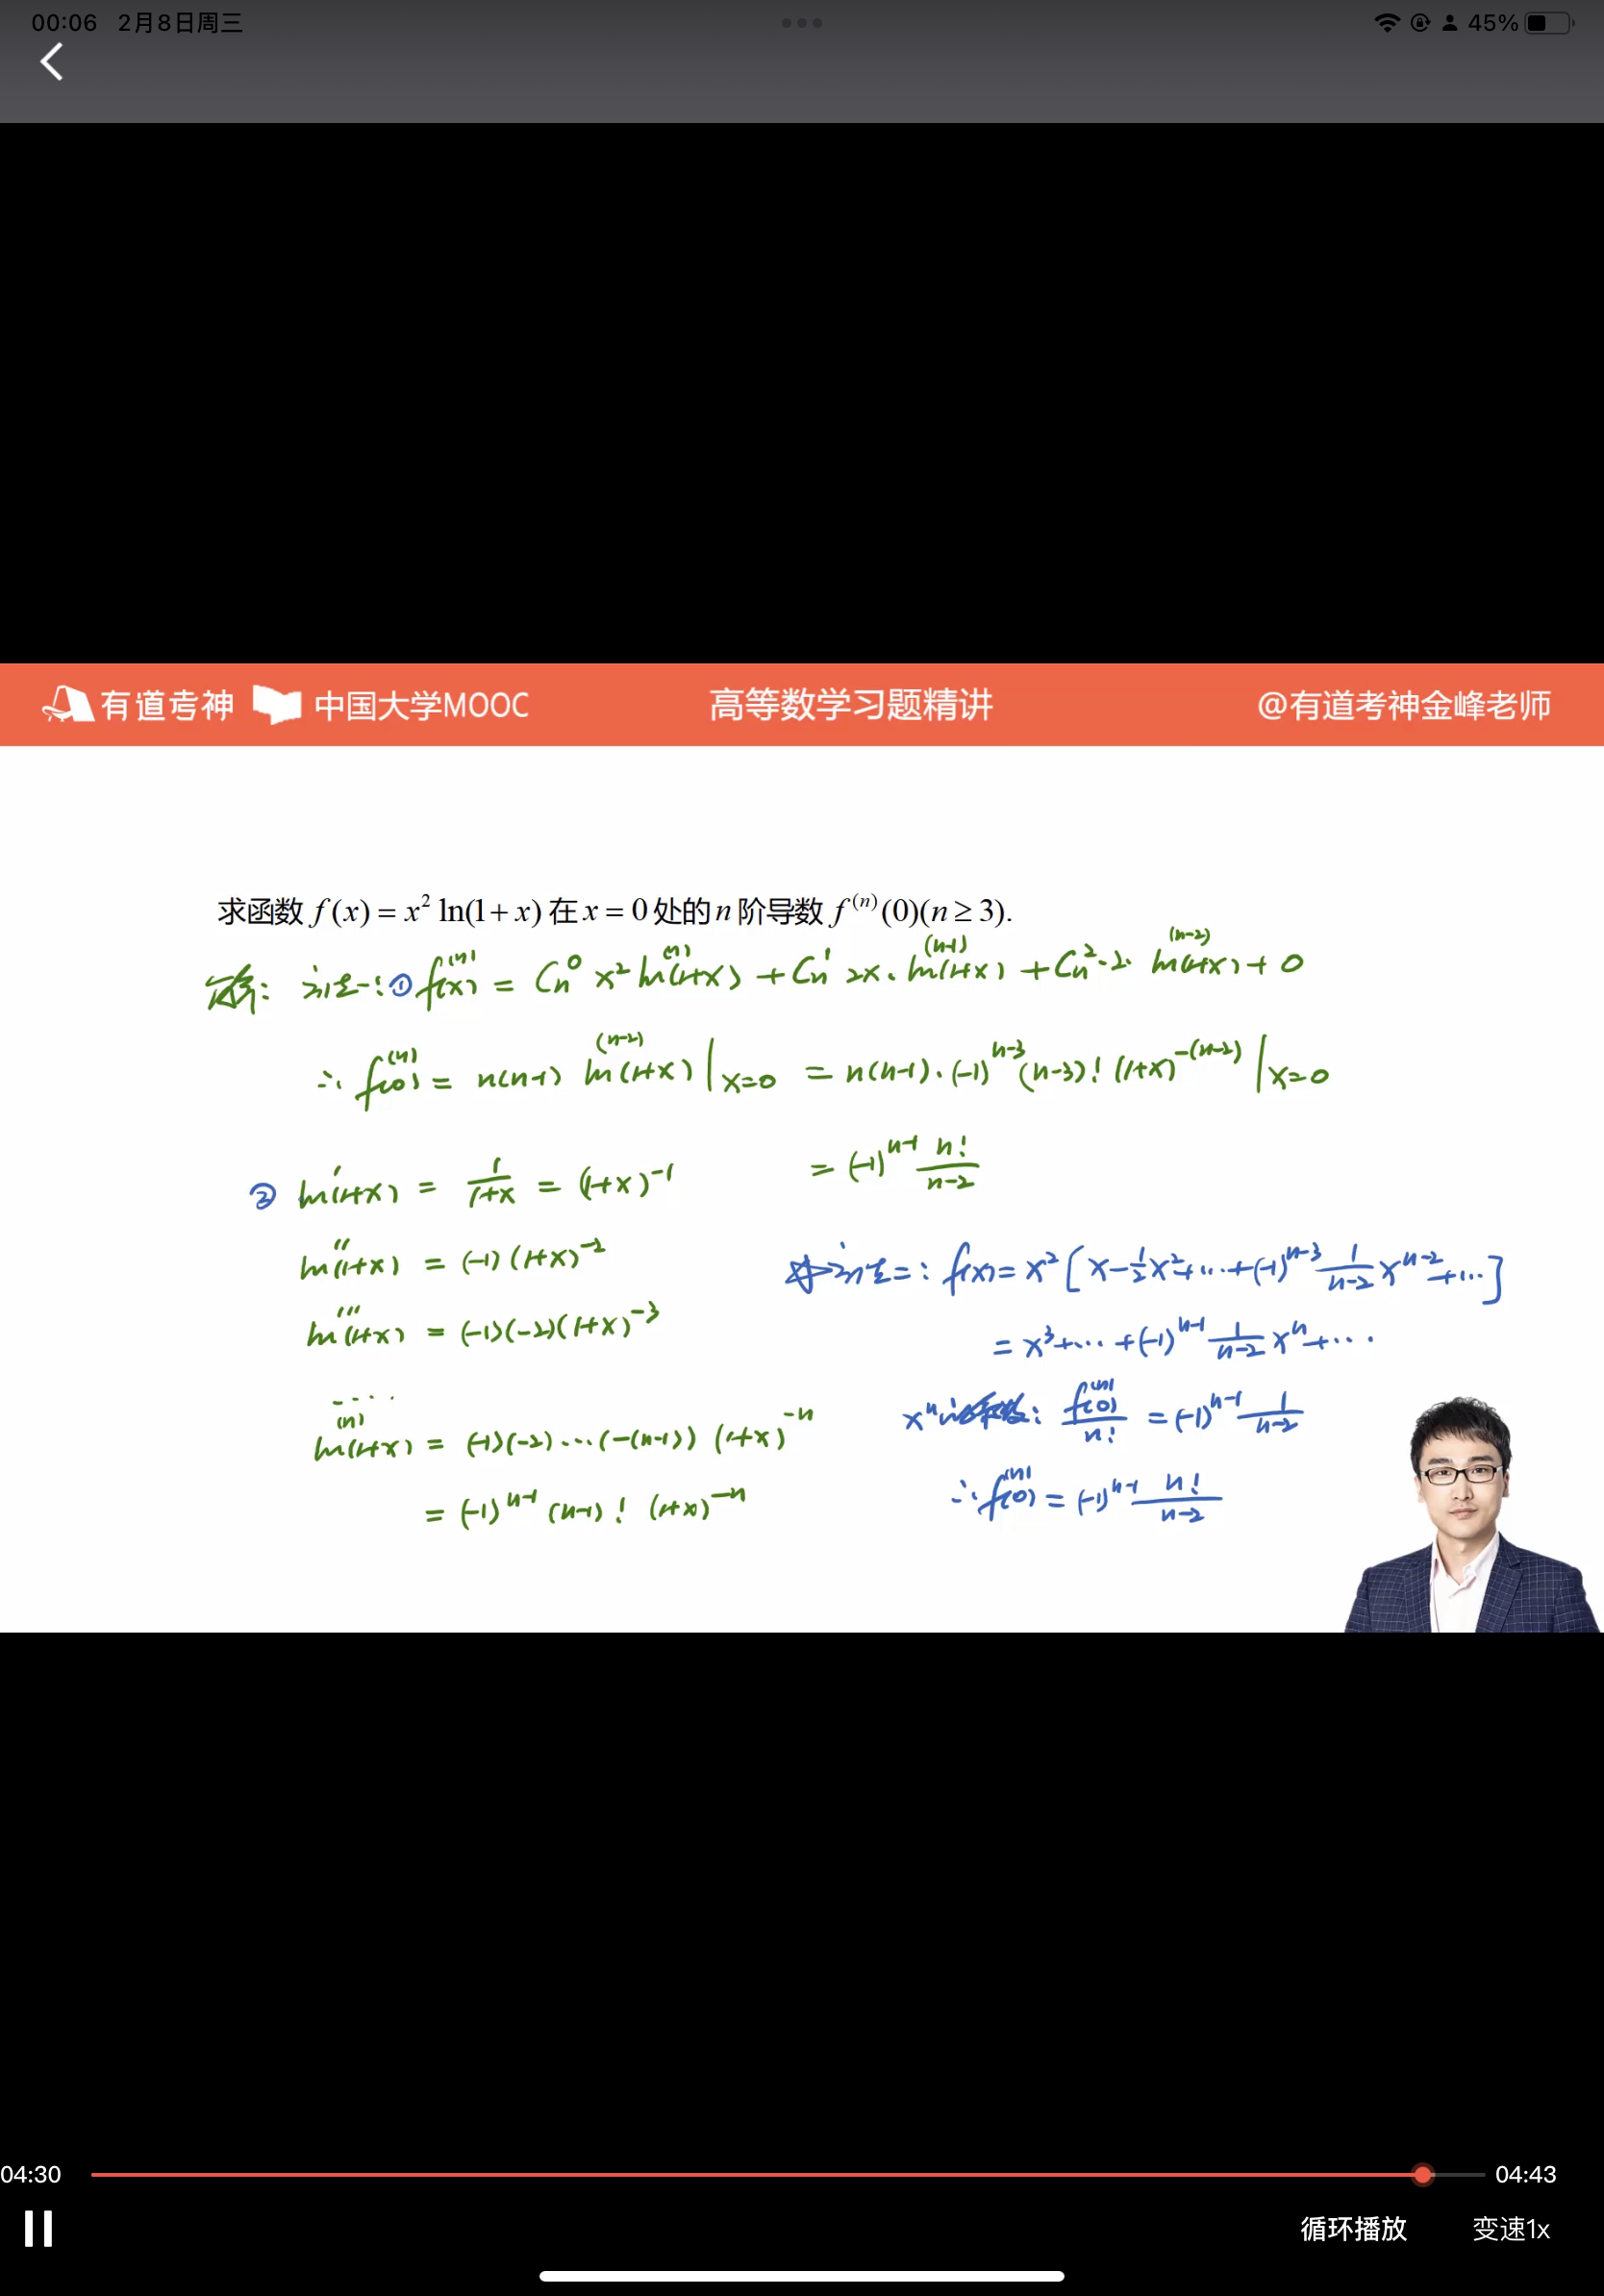 00:06 2月8日周三 45%
有道考神 中国大学MOOC 高等数学习题精讲 @有道考神金峰老师
求函数 f(x) = x² ln(1+x) 在 x = 0 处的 n 阶导数 f⁽ⁿ⁾(0)(n ≥ 3).
解: 方法一: ① f⁽ⁿ⁾(x) = Cₙ⁰ x² ln⁽ⁿ⁾(1+x) + Cₙ¹ 2x· ln⁽ⁿ⁻¹⁾(1+x) + Cₙ²·2· ln⁽ⁿ⁻²⁾(1+x) + 0
∴ f⁽ⁿ⁾(0) = n(n-1) ln⁽ⁿ⁻²⁾(1+x) |x=0 = n(n-1)·(-1)ⁿ⁻³ (n-3)! (1+x)^-(n-2) |x=0
= (-1)ⁿ⁻¹ n!/(n-2)
② ln'(1+x) = 1/(1+x) = (1+x)⁻¹
ln''(1+x) = (-1)(1+x)⁻²
ln'''(1+x) = (-1)(-2)(1+x)⁻³
.....
ln⁽ⁿ⁾(1+x) = (-1)(-2)...(-(n-1)) (1+x)⁻ⁿ
= (-1)ⁿ⁻¹ (n-1)! (1+x)⁻ⁿ
☆方法二: f(x) = x² [x - 1/2 x² + ... + (-1)ⁿ⁻³ 1/(n-2) xⁿ⁻² + ...]
= x³ + ... + (-1)ⁿ⁻¹ 1/(n-2) xⁿ + ...
xⁿ的系数: f⁽ⁿ⁾(0)/n! = (-1)ⁿ⁻¹ 1/(n-2)
∴ f⁽ⁿ⁾(0) = (-1)ⁿ⁻¹ n!/(n-2)
04:30 04:43
循环播放 变速1x